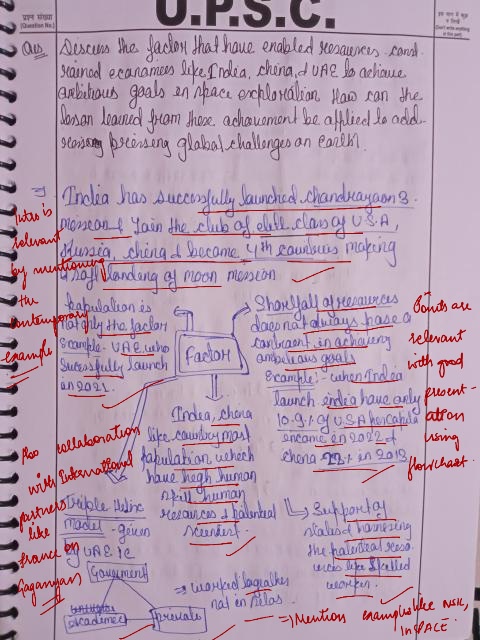 U.P.S.C.
प्रश्न संख्या
(Question No.)
(Don't write anything in this part)
Discuss the factor that have enabled resources const
rained economies like India, china, & UAE to achieve
ambitious goals in space exploration How can the
lesson learned from these achievement be applied to add-
ressing pressing global challenges on earth.
India has successfully launched chandrayaan 3
mission & Join the club of elite class of U.S.A,
Russia, china & became 4th countries making
a soft landing of moon mission
Intro is
relevant
by mentioning
the
contemporary
example
population is
not only the factor
Example - UAE who
Successfully launch
in 2021.
Factor
Shortfall of resources
does not always pose a
constraint in achieving
ambitious goals
Example:- when India
launch india have only
10.9% of USA per capita
income in 2022 &
china 23% in 2013
Points are
relevant
with good
present-
ation
using
flowchart.
India, china
like country most
population which
have high human
skill human
resources & potential
scientist
Also collaboration
with International
partners
like
france
Gaganyan
Triple Helix
model - given
by UAE ie
Goverment
academic
private
=> worked together
not in silos
Support of
states & harnessing
the potential reso
urces like skilled
worker
=> Mention examples like NSIL,
INSPACE